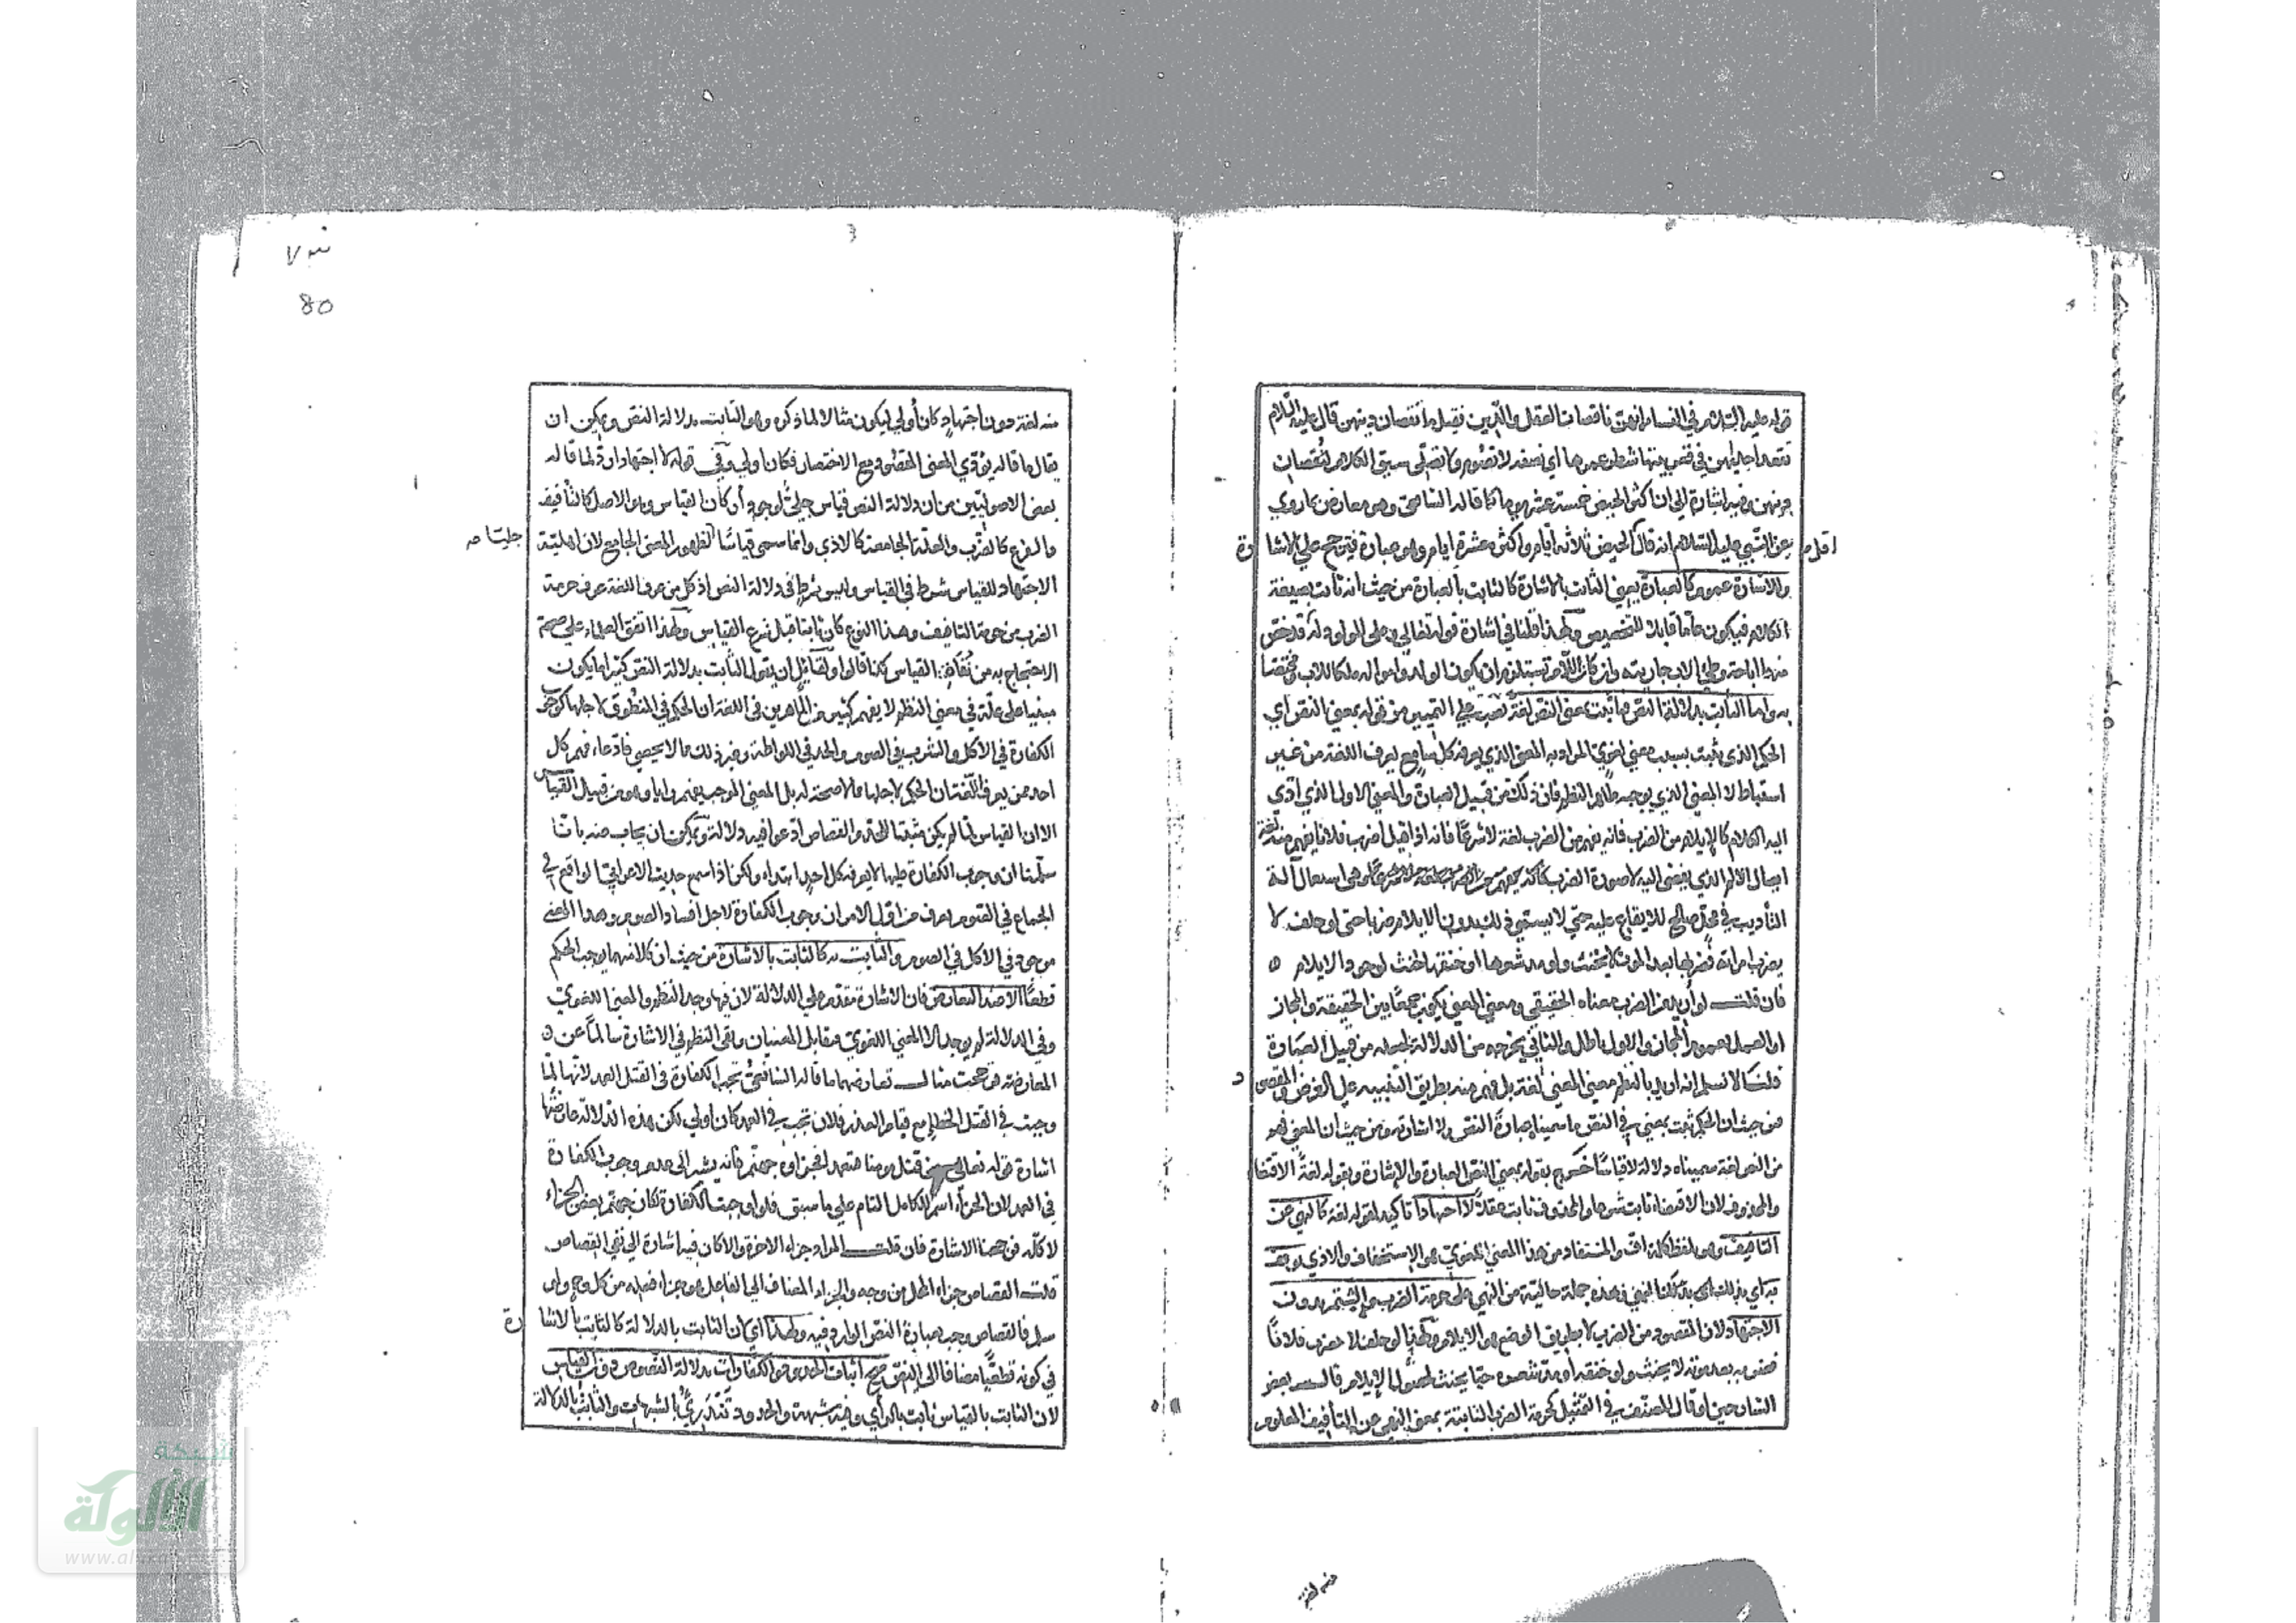 قوله عليه السلام في النساء انهن ناقصات العقل والدين فقيل ما نقصان دينهن قال عليه السلام
تقعد احديهن في قعر بيتها شطر عمرها اي نصفه لا تصوم ولا تصلي سيق الكلام لنقصان
دينهن وفيه اشارة الي ان اكثر الحيض خمسة عشر يوما كما قاله الشافعي وهو معارض بما روي
عن النبي عليه السلام انه قال الحيض ثلاثة ايام واكثره عشرة ايام وهو عبارة فيترجح علي الاشارة
اقل
وللاشارة عموم كالعبارة يعني الثابت بالاشارة كالثابت بالعبارة من حيث انه ثابت بصيغة
الكلام فيكون عاما قابلا للتخصيص ولهذا قلنا في اشارة قوله تعالي وعلي المولود له قد خص
منها اباحة وطئ الاب جاريته وان كان اللام تستلزم ان يكون الولد وامواله ملكا للاب مختصا
به واما الثابت بدلالة النص فما ثبت بمعني النص لغة نصب علي التمييز من قوله بمعني النص اي
الحكم الذي ثبت بسبب معني لغوي المراد به المعني الذي يعرفه كل سامع يعرف اللغة من غير
استنباط لا المعني الذي يوجبه ظاهر النظم فان ذلك من قبيل العبارة والمعني الاول الذي ادي
اليه الكلام كالايلام من الضرب فانه يفهم من الضرب لغة لا شرعا فانه اذا قيل اضرب فلانا يفهم منه لغة
ايصال الالم الذي يفضي اليه لا صورة الضرب وهي استعمال آلة
التأديب في محل صالح للايقاع عليه حتي لا يستمي ذلك بدون الايلام ضربا حتي لو حلف لا
يضرب امراته فضربها بعد الموت لا يحنث ولو مد شعرها او خنقها يحنث لوجود الايلام
فان قلت لو اريد من الضرب معناه الحقيقي ومعني المعني يكون جمعا بين الحقيقة والمجاز
او العمل بعموم المجاز والاول باطل والثاني يخرجه من الدلالة لجعله من قبيل العبارة
قلنا لا نسلم انه اريد بالنظم معني المعني لغة بل فهم منه بطريق التنبيه علي الغرض والمقصود
فمن حيث ان الحكم ثبت بمعني في النص ما سميناه عبارة النص ولا اشارته ومن حيث ان المعني فهم
من النص لغة سميناه دلالة لا قياسا خرج بقوله بمعني النص العبارة والاشارة وبقوله لغة الاقتضاء
والمحذوف لان الاقتضاء ثابت شرعا والمحذوف ثابت عقلا لا اجتهادا تاكيد لقوله لغة كالنهي عن
التافيف وهو لفظ كلمة اف والمستفاد من هذا المعني اللغوي هو الاستخفاف والاذي يوقف
به اي بذلك المعني علي حرمة الضرب والشتم بدون
الاجتهاد لان المقصود من الضرب لا بطريق الوضع هو الايلام ولهذا لو حلف لا يضرب فلانا
فضربه بعد موته لا يحنث ولو خنقه او مد شعره حيا يحنث لحصول الايلام قال بعض
الشارحين لو قال المصنف في التمثيل كحرمة الضرب الثابتة بمعني النهي عن التأفيف المعلوم
منه لغة
٧٣
80
منه لغة دون اجتهاد كان أولي ليكون مثالا لما ذكره وهو الثابت بدلالة النص ويمكن ان
يقال ما قاله يؤدي المعني المقصود مع الاختصار فكان اولي وفي قوله لا اجتهادا رد لما قاله
بعض الاصوليين من ان دلالة النص قياس جلي لوجود أركان القياس وهو الاصل كالتأفيف
والفرع كالضرب والعلة الجامعة كالاذي وانما سمي قياسا لظهور المعني الجامع لان اهلية
جليا صح
الاجتهاد للقياس شرط في القياس وليس بشرط في دلالة النص اذ كل من عرف اللغة عرف حرمة
الضرب من حرمة التافيف وهذا النوع كان ثابتا قبل شرع القياس ولهذا اتفق العلماء علي صحة
الاحتجاج به من نفاة القياس كذا قالوا ولقائل ان يقول الثابت بدلالة النص كثيرا ما يكون
مبنيا علي علة في معني النظم لا يفهم كثير من الماهرين في اللغة ان الحكم في المنطوق لاجلها كوجوب
الكفارة في الاكل والشرب في الصوم والحد في اللواطة وغير ذلك مما لا يحصي فادعاء فهم كل
احد ممن يعرف اللغة ان الحكم لاجلها مما لا صحة له بل المعني الموجب يفهم رايا وهو من قبيل القياس
الا ان القياس لما لم يكن مثبتا للحد والقصاص ادعوا فيه دلالة ويمكن ان يجاب عنه بانا
سلمنا ان وجوب الكفارة عليها لا يعرفه كل احد ابتداء ولكن اذا سمع حديث الاعرابي الواقع في
الجماع في الصوم يعرف من اول الامر ان وجوب الكفارة لاجل افساد الصوم وهذا المعني
موجود في الاكل في الصوم والثابت به كالثابت بالاشارة من حيث ان كلا منهما يوجب الحكم
قطعا الا عند التعارض فان الاشارة تقدم علي الدلالة لان فيها وجد النظم والمعني اللغوي
وفي الدلالة لم يوجد الا المعني اللغوي فتقابل المعنيان وبقي النظم في الاشارة سالما عن
المعارضة فرجحت مثال تعارضهما ما قاله الشافعي تجب الكفارة في القتل العمد لانها لما
وجبت في القتل الخطا مع قيام العذر فلان تجب في العمد كان اولي لكن هذه الدلالة عارضها
اشارة قوله تعالي ومن قتل مومنا متعمدا فجزاؤه جهنم فانه يشير الي عدم وجوب الكفارة
في العمد لان الجزاء اسم للكامل التام علي ما سبق فلو وجبت الكفارة لكان جهنم بعض الجزاء
لا كله فرجحنا الاشارة فان قلت المراد جزاء الاخرة والا كان فيه اشارة الي نفي القصاص
قلت القصاص جزاء المحل من وجه والجزاء المضاف الي الفاعل هو جزاء فعله من كل وجه ولو
سلم فالقصاص وجب بعبارة النص الوارد فيه ولهذا اي لان الثابت بالدلالة كالثابت بالاشارة
في كونه قطعيا مضافا الي النص صح اثبات الحدود والكفارات بدلالة النصوص دون القياس
لان الثابت بالقياس ثابت بالرأي وفيه شبهة والحدود تندرئ بالشبهات والثابت بالدلالة
شبكة
الألوكة